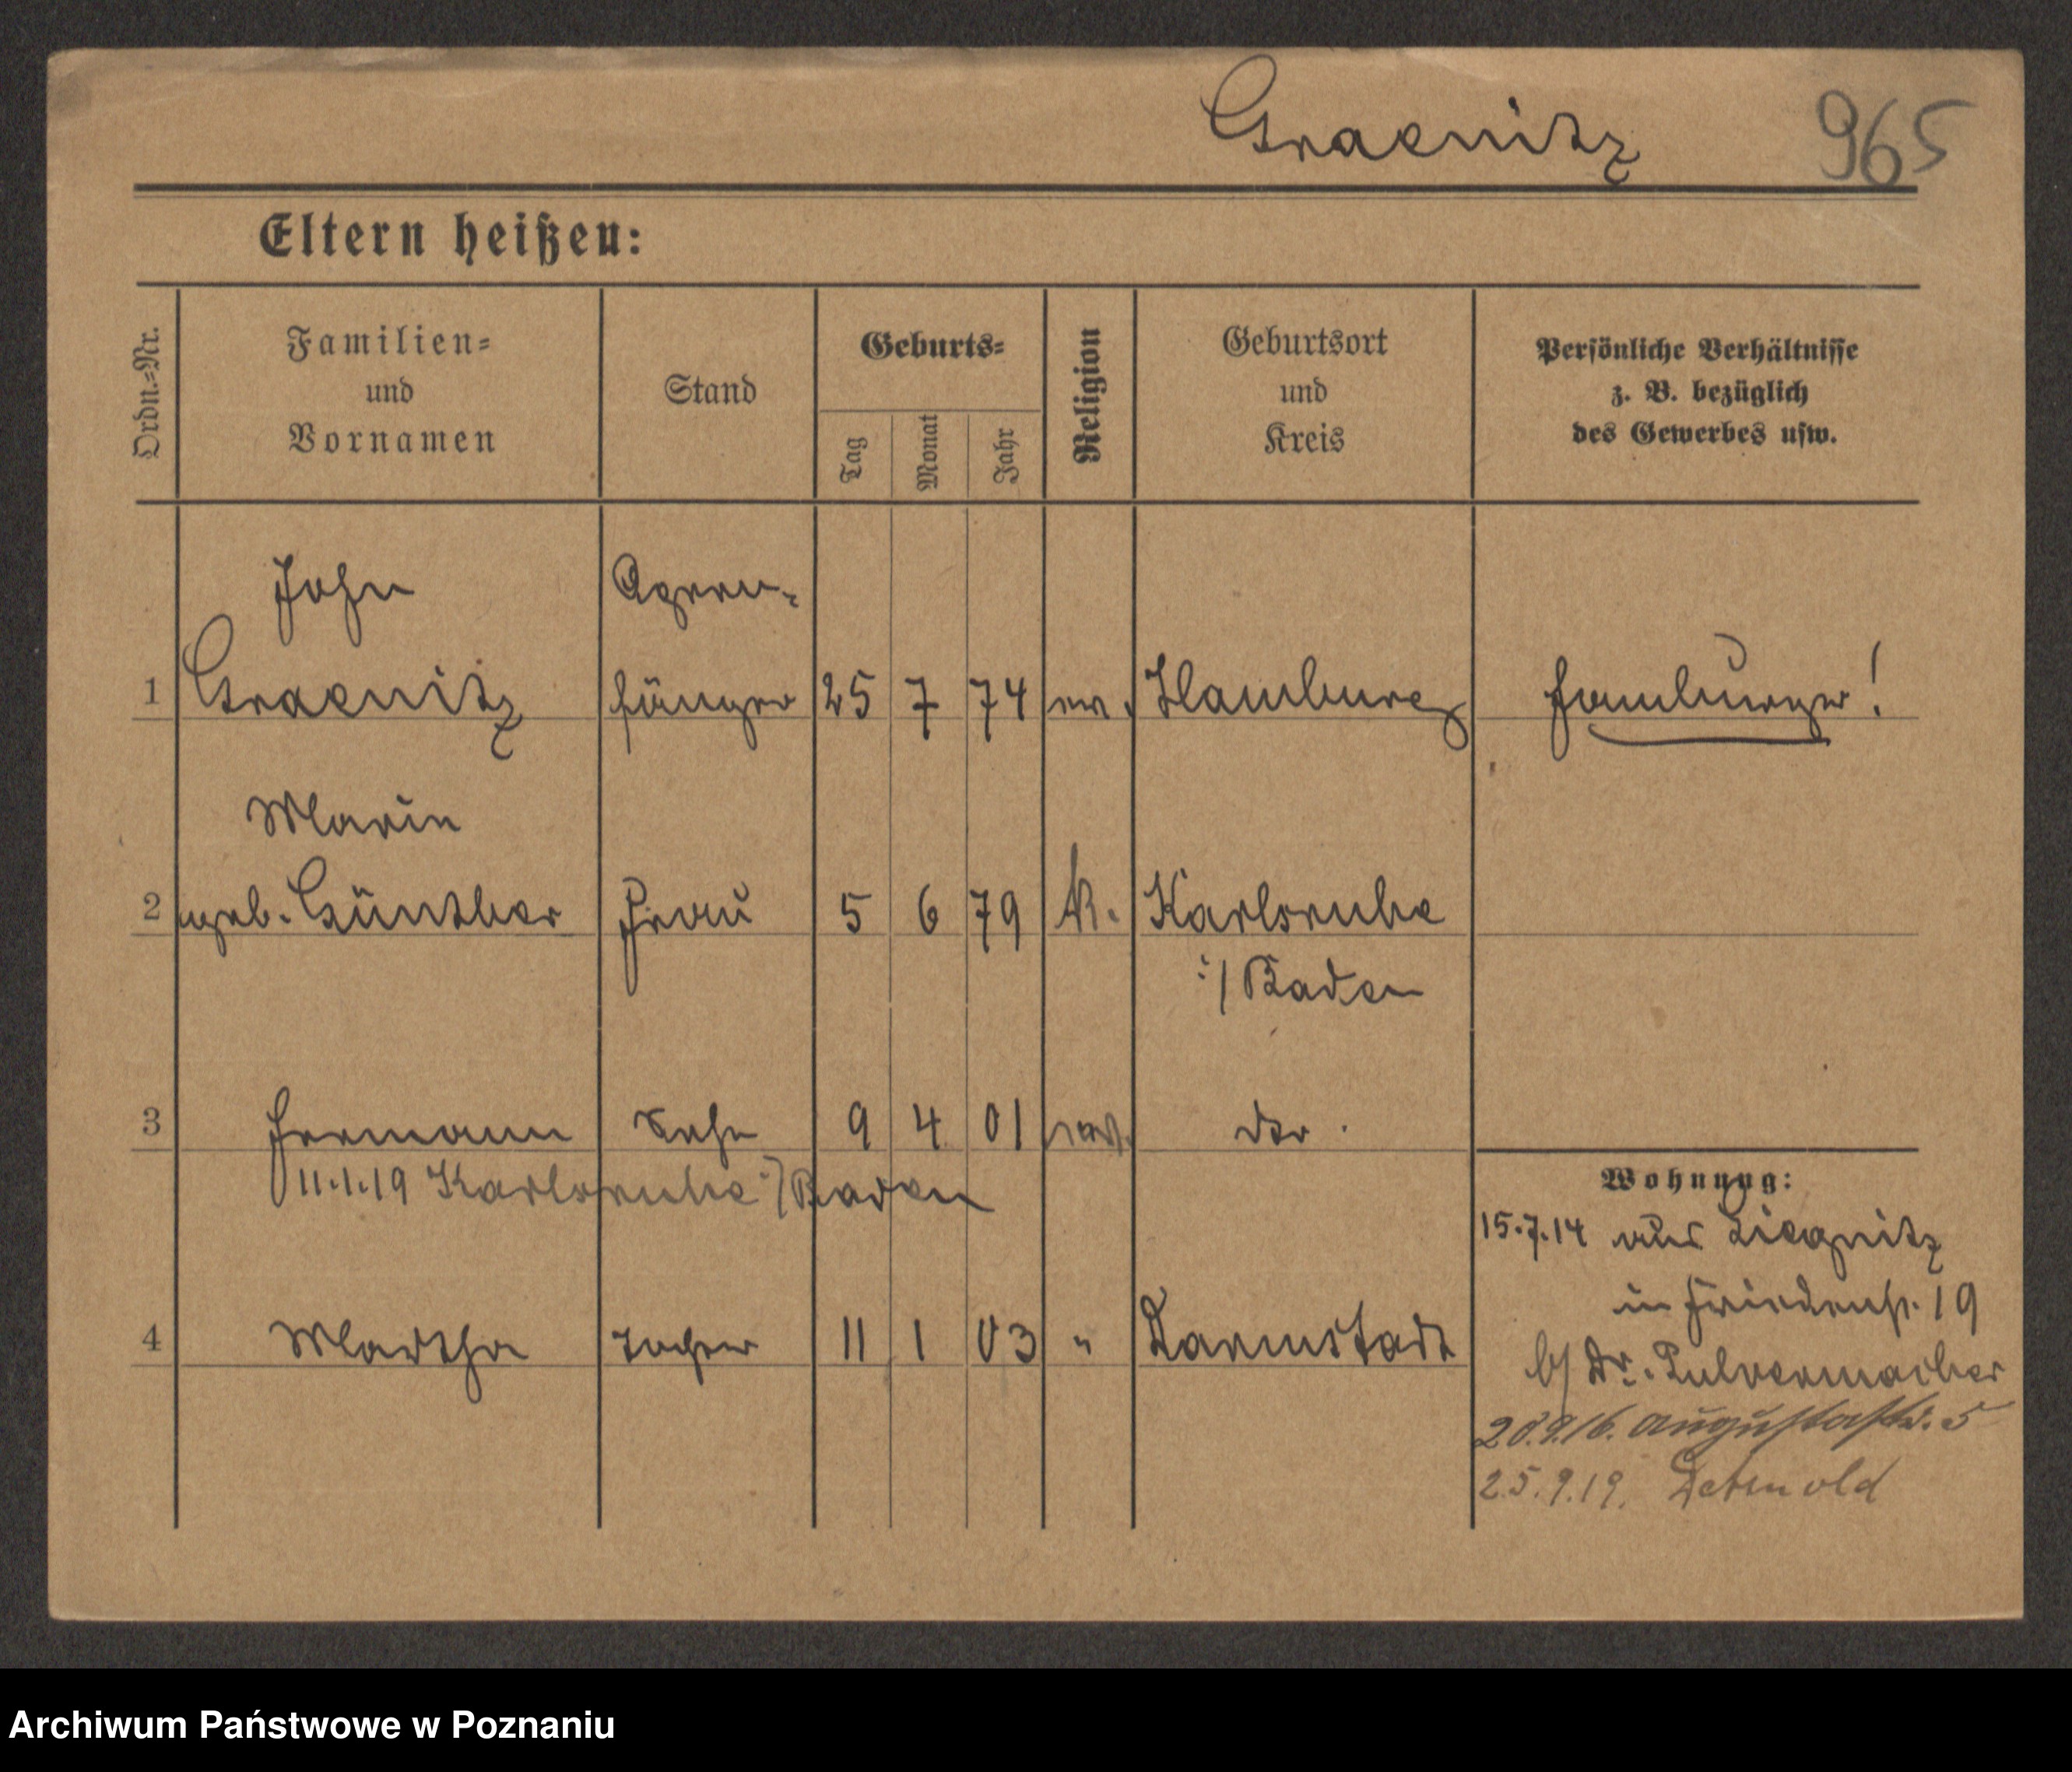 Graenitz 965
Eltern heißen:
Ordn.-Nr.
Familien-
und
Vornamen
Stand
Geburts-
Tag
Monat
Jahr
Religion
Geburtsort
und
Kreis
Persönliche Verhältnisse
z. B. bezüglich
des Gewerbes usw.
John Opern-
1 Graenitz sänger 25 7 74 ev. Hamburg Hamburger!
Marie
2 geb. Günther Frau 5 6 79 k. Karlsruhe
i/ Baden
3 Hermann Sohn 9 4 01 ev. do.
11.1.19 Karlsruhe i/Baden
Wohnung:
15.7.14 aus Liegnitz
in Friedenstr. 19
4 Martha Tochter 11 1 03 " Darmstadt
b/ Dr. Pulvermacher
28.9.16. Augustastr. 5
25.9.19. Detmold
Archiwum Państwowe w Poznaniu